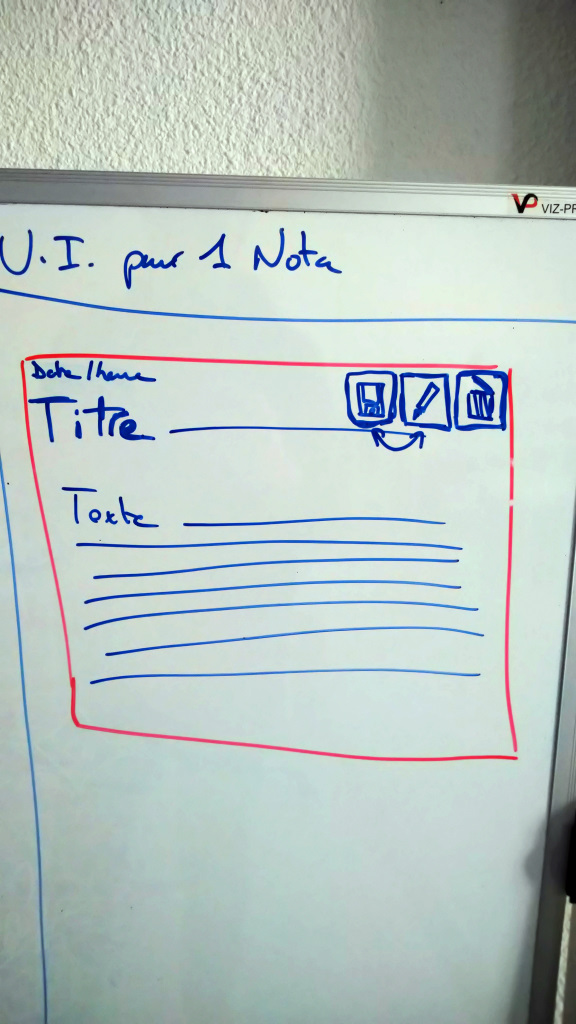 VP VIZ-PR
U.I. pour 1 Nota
Date/heure
Titre
Texte